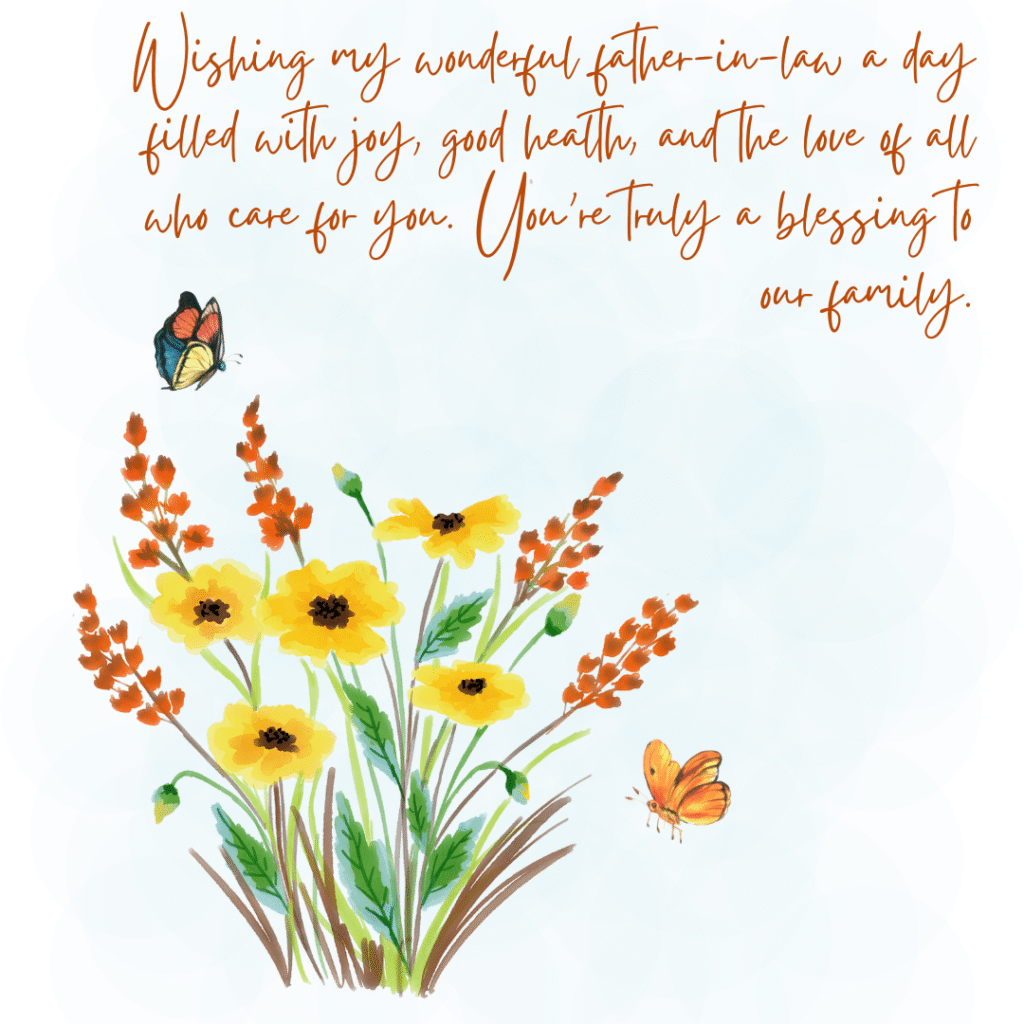 Wishing my wonderful father-in-law a day
filled with joy, good health, and the love of all
who care for you. You're truly a blessing to
our family.